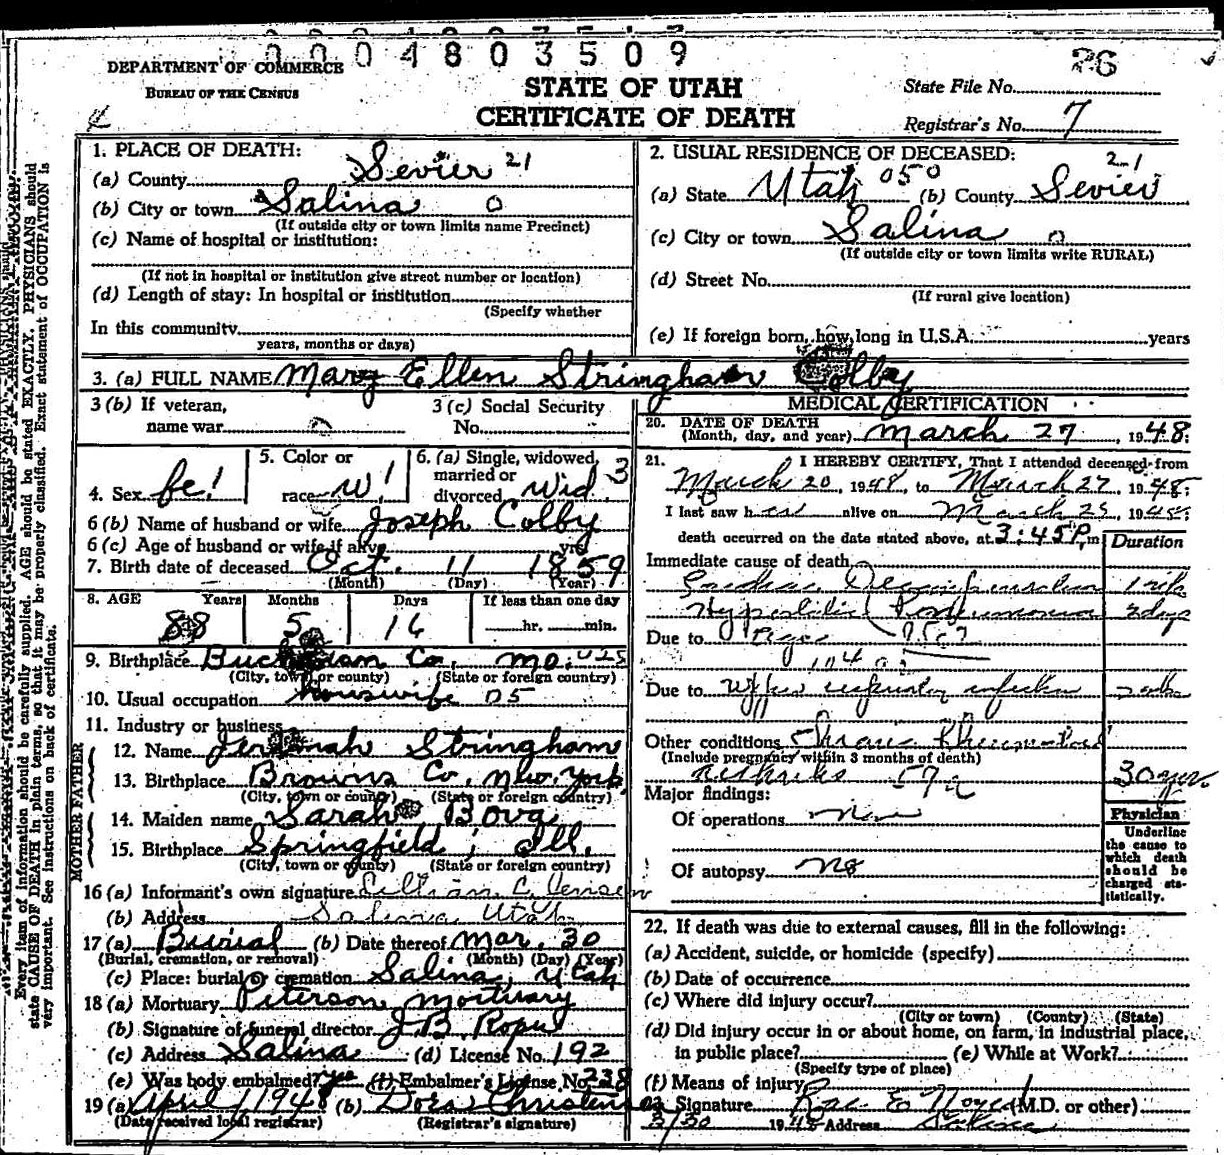 0004803509
DEPARTMENT OF COMMERCE
BUREAU OF THE CENSUS
STATE OF UTAH
CERTIFICATE OF DEATH
State File No. 26
Registrar's No. 7
1. PLACE OF DEATH:
(a) County Sevier 21
(b) City or town Salina 0
(If outside city or town limits name Precinct)
(c) Name of hospital or institution:
(If not in hospital or institution give street number or location)
(d) Length of stay: In hospital or institution
(Specify whether
In this community
years, months or days)
2. USUAL RESIDENCE OF DECEASED:
(a) State Utah 050 (b) County Sevier 21
(c) City or town Salina 0
(If outside city or town limits write RURAL)
(d) Street No.
(If rural give location)
(e) If foreign born, how long in U.S.A. years
3. (a) FULL NAME Mary Ellen Stringham Colby
3 (b) If veteran,
name war
3 (c) Social Security
No.
4. Sex fe
5. Color or
race W
6. (a) Single, widowed,
married or
divorced Wid 3
6 (b) Name of husband or wife Joseph Colby
6 (c) Age of husband or wife if alive yrs.
7. Birth date of deceased Oct. 11 1859
(Month) (Day) (Year)
8. AGE Years Months Days If less than one day
88 5 16 hr. min.
9. Birthplace Buchanan Co. Mo.
(City, town or county) (State or foreign country)
10. Usual occupation Houswife 05
11. Industry or business
FATHER
12. Name Jeremiah Stringham
13. Birthplace Browns Co, New York
(City, town or county) (State or foreign country)
MOTHER
14. Maiden name Sarah Bova
15. Birthplace Springfield, Ill.
(City, town or county) (State or foreign country)
16 (a) Informant's own signature Lillian C. Jensen
(b) Address Salina Utah
17 (a) Burial (b) Date thereof Mar. 30
(Burial, cremation, or removal) (Month) (Day) (Year)
(c) Place: burial or cremation Salina, Utah
18 (a) Mortuary Peterson Mortuary
(b) Signature of funeral director J B Roper
(c) Address Salina (d) License No. 192
(e) Was body embalmed? yes (f) Embalmer's License No. 238
19 (a) April 1 1948 (b) Dora Christensen
(Date received local registrar) (Registrar's signature)
MEDICAL CERTIFICATION
20. DATE OF DEATH
(Month, day, and year) March 27, 1948
21. I HEREBY CERTIFY, That I attended deceased from
March 20, 1948, to March 27, 1948;
I last saw her alive on March 25, 1948;
death occurred on the date stated above, at 3:45 P. m
Duration
Immediate cause of death
Cardiac Decompensation 1 wk
Hypostatic Pneumonia 2 days
Due to Age
Due to Upper respiratory infection
Other conditions Chronic Rheumatoid
(Include pregnancy within 3 months of death)
Arthritis 30 yrs.
Major findings:
Of operations None
Of autopsy No
Physician
Underline
the cause to
which death
should be
charged sta-
tistically.
22. If death was due to external causes, fill in the following:
(a) Accident, suicide, or homicide (specify)
(b) Date of occurrence
(c) Where did injury occur?
(City or town) (County) (State)
(d) Did injury occur in or about home, on farm, in industrial place,
in public place? (e) While at Work?
(Specify type of place)
(f) Means of injury
23. Signature Rae E Noyes (M.D. or other)
3/30 1948 Address Salina
Every item of information should be carefully supplied. AGE should be stated EXACTLY. PHYSICIANS should
state CAUSE OF DEATH in plain terms, so that it may be properly classified. Exact statement of OCCUPATION is
very important. See instructions on back of certificate.